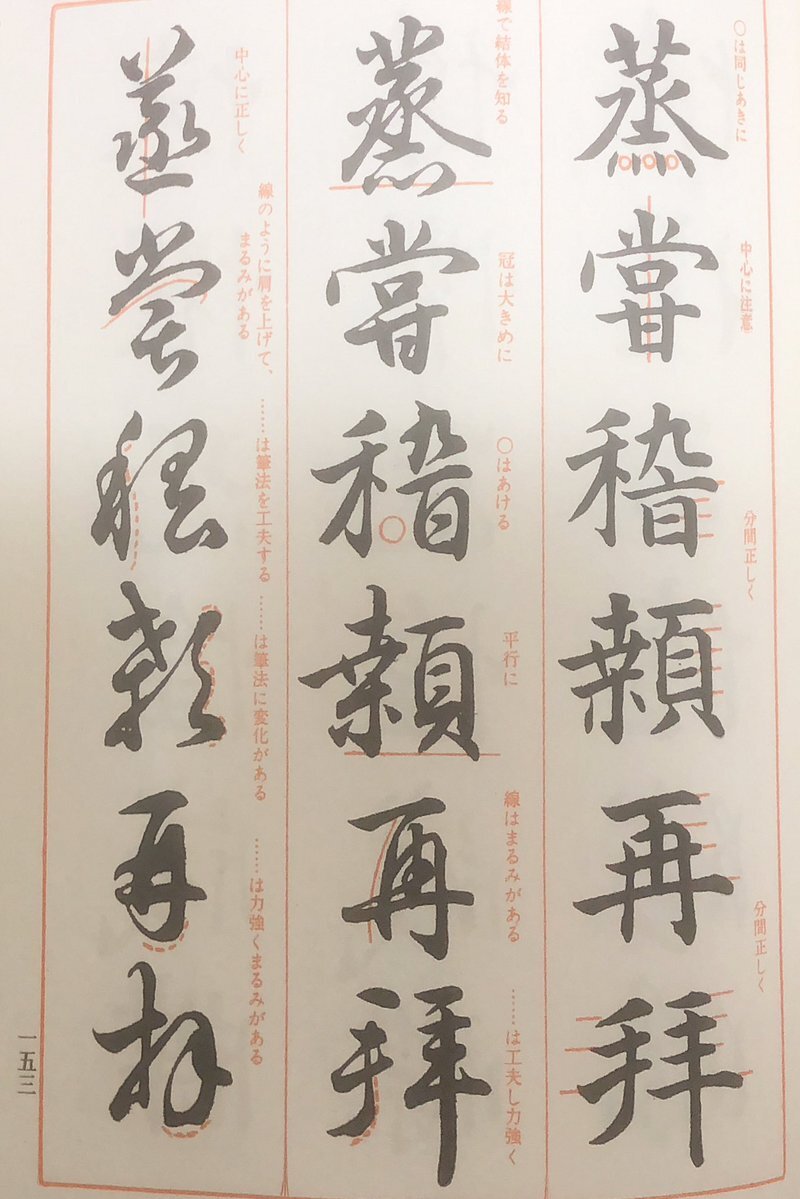 ○は同じあきに
中心に注意
分間正しく
分間正しく
蒸嘗稽顙再拜
線で結体を知る
冠は大きめに
○はあける
平行に
線はまるみがある
……は工夫し力強く
蒸嘗稽顙再拜
中心に正しく
線のように肩を上げて、
まるみがある
……は筆法を工夫する
……は筆法に変化がある
……は力強くまるみがある
蒸嘗稽顙再拜
一五三